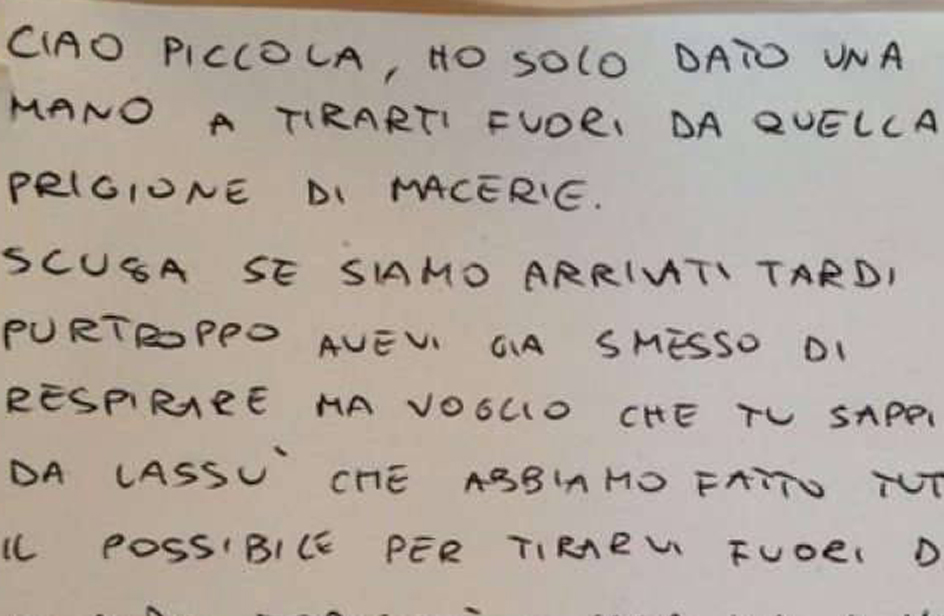 CIAO PICCOLA, HO SOLO DATO UNA
MANO A TIRARTI FUORI DA QUELLA
PRIGIONE DI MACERIE.
SCUSA SE SIAMO ARRIVATI TARDI
PURTROPPO AVEVI GIA SMESSO DI
RESPIRARE MA VOGLIO CHE TU SAPPI
DA LASSU` CHE ABBIAMO FATTO TUT
IL POSSIBILE PER TIRARVI FUORI D